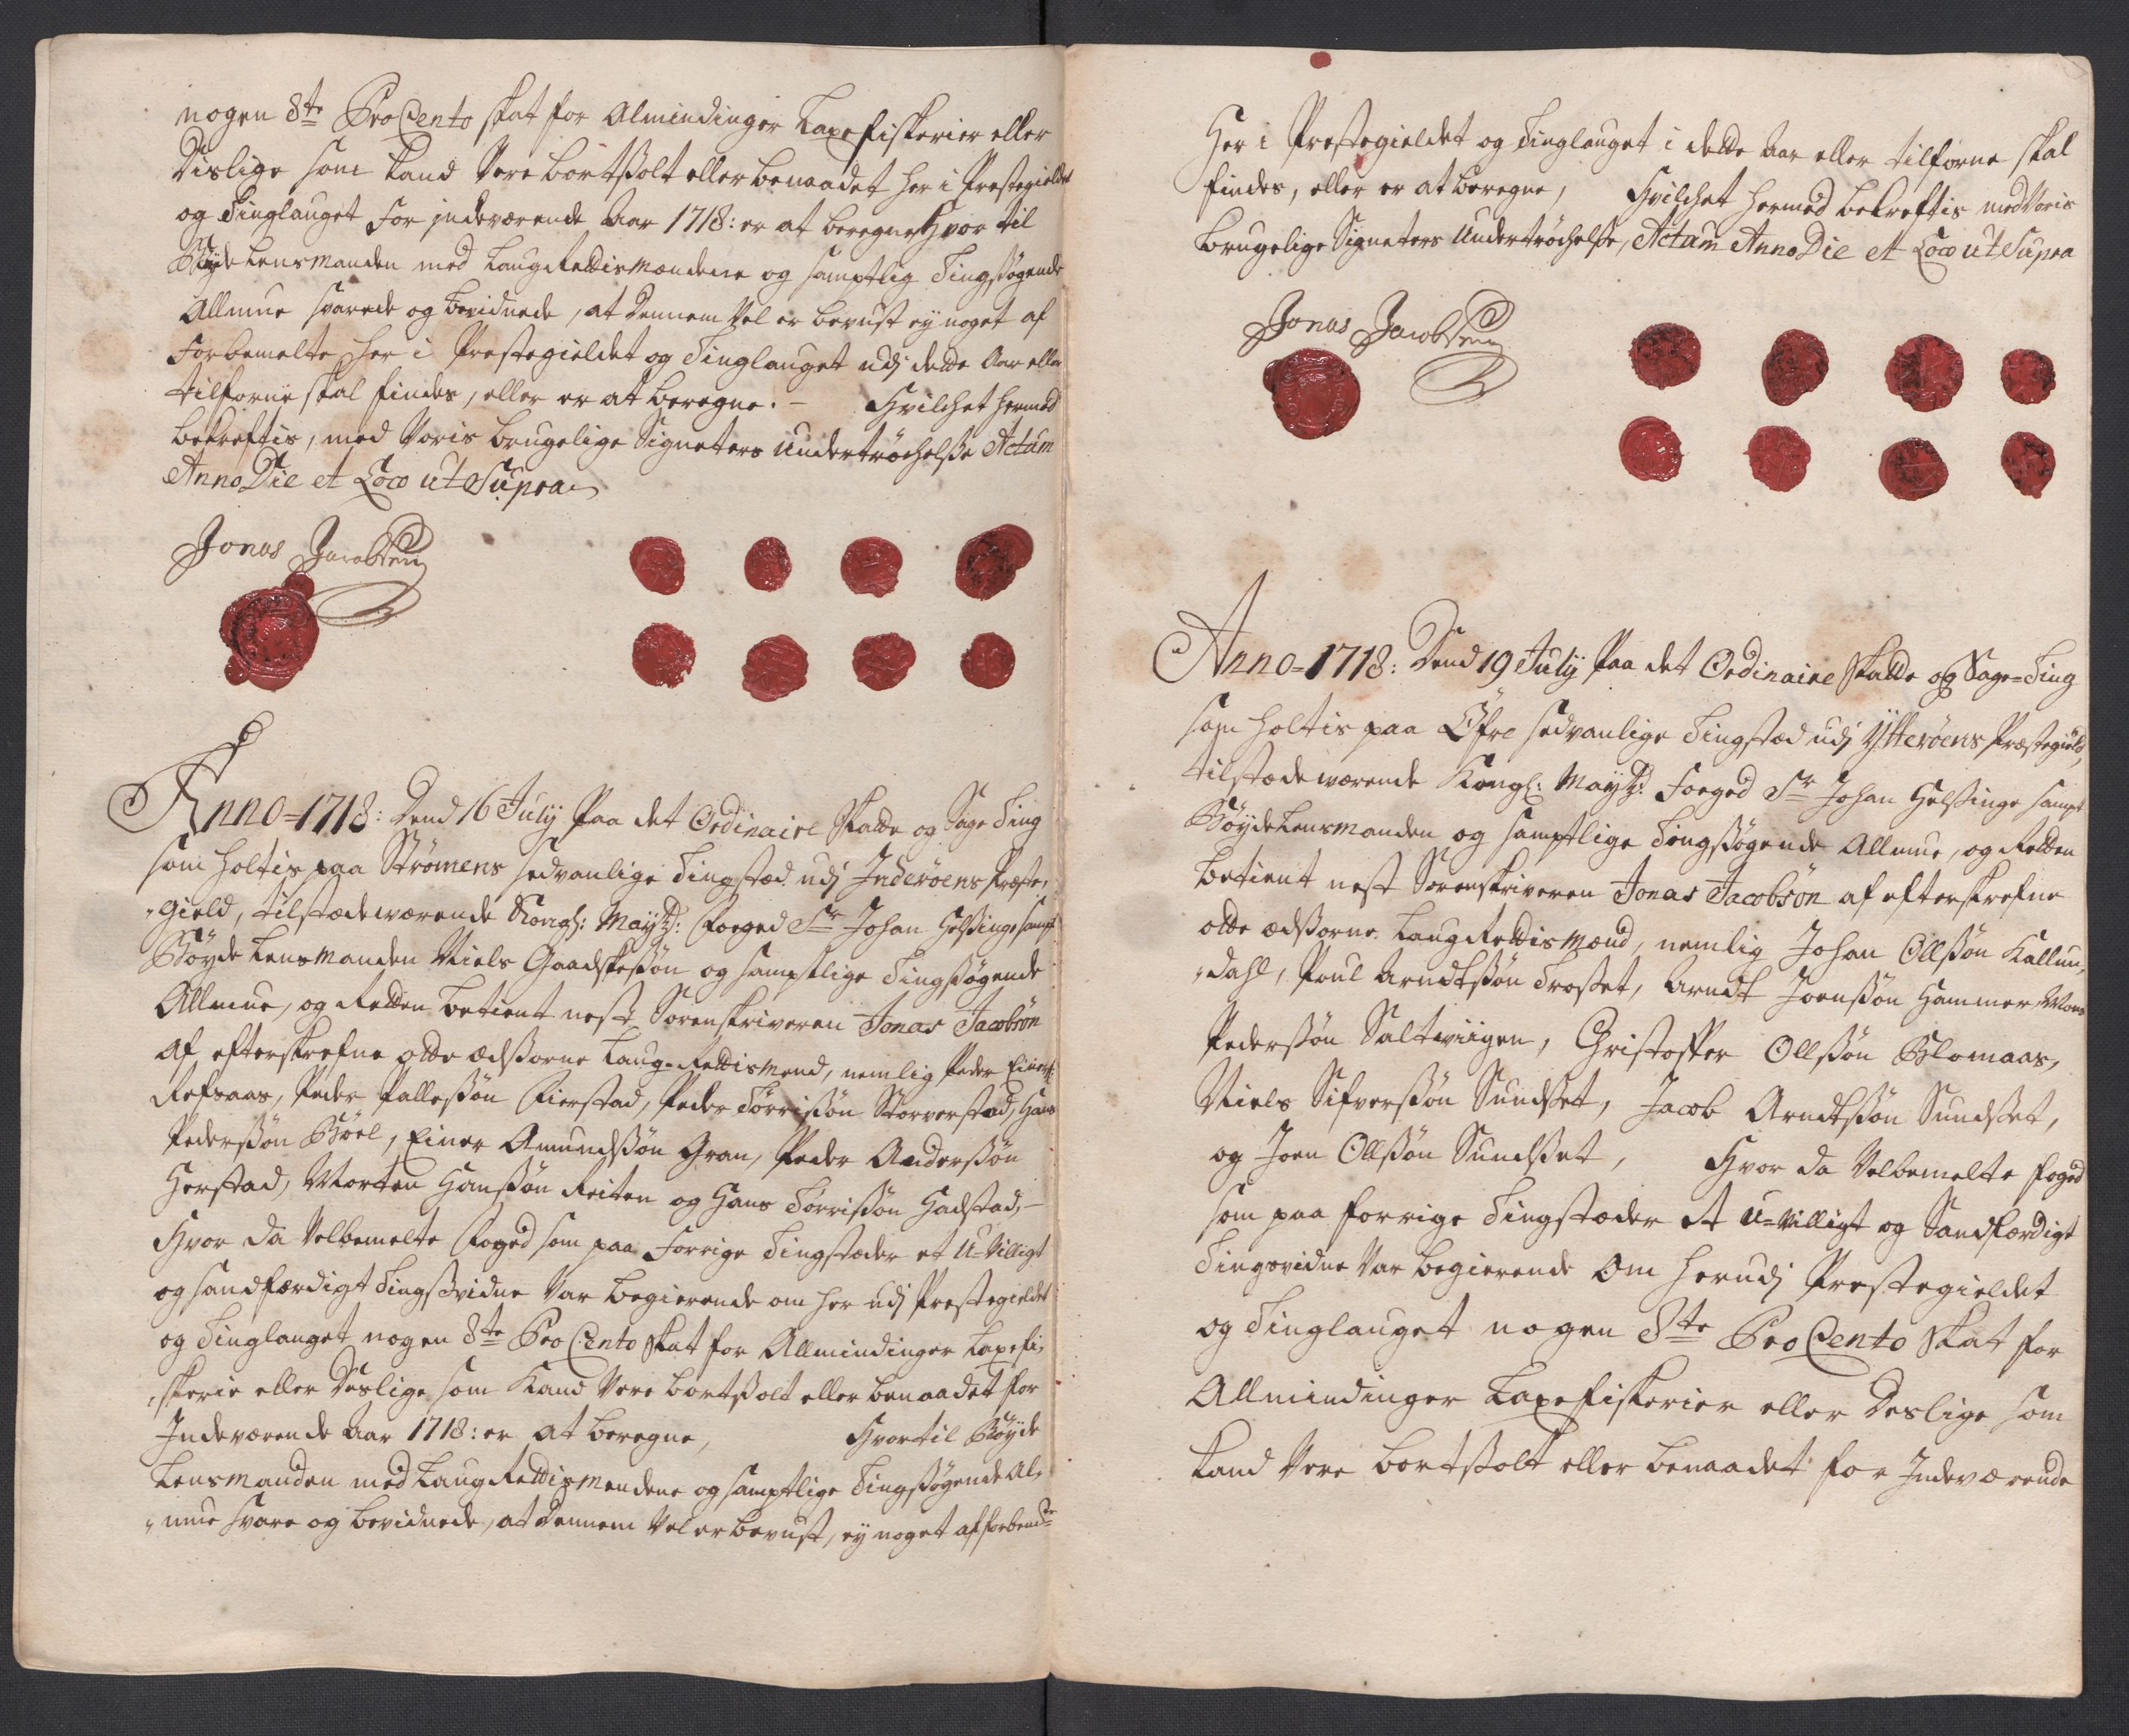 nogen 8te ProCento skat for Almindinger Laxefiskerier eller
Dislige som kand Vere bortsolt eller benaadet her i Prestegieldet
og Tinglauget for jndeværende Aar 1718: er at beregne Hvor til
Böyde Lensmanden med Laugrettismændene og samptlig Tingsøgende
Allmue svarede og bevidnede, at dennem Vel er bevust ey noget af
Forbemelte her i Prestegieldet og Tinglauget udj dette Aar eller
tilforne skal findes, eller er at beregne. - Hvilchet hermed
bekreftis, med Voris brugelige Signeters undertröchelse Actum
Anno Die et Loco ut Supra
Jonas Jacobsen
Anno=1718: Dend 16 July Paa det Ordinaire Skatte og Sage Ting
som holtis paa Strömens sedvanlige Tingsted udj Inderöens Preste,
,gield, tilstædeværende Kongl: Mayts: Foeged Sr Johan Helsinge sampt
Böyde Lensmanden Niels Gaadskessøn og samptlige Tingsøgende
Allmue, og Retten betient nest Sorenskriveren Jonas Jacobsön
af efterskrefne otte ædsorne Laug-Rettismend, nemlig Peder Einers:
Refsaas, Peder Pallessøn Fierstad, Peder Törrissøn Storverstad, Hans
Pederssøn Böel, Einer Amundssøn Gran, Peder Anderssøn
Herstad, Morten Hanssøn Reiten og Hans Törrissøn Hadstad, -
Hvor da Velbemelte Foged som paa Forrige Tingstæder et U-Villigt
og sandfærdigt Tingsvidne Var begierende om her udj Prestegieldet
og Tinglauget nogen 8te ProCento Skat for Allmindinger Laxefi,
,skerie eller Deslige som Kand Vere bortsolt eller benaadet for
Indeværende Aar 1718: er at beregne, Hvortil Böyde
Lensmanden med Laugrettismendene og samptlige Tingsøgende Al,
,mue svare og bevidnede, at dennem Vel er bevust, ey noget af forbemte
Her i Prestegieldet og Tinglauget i dette Aar eller tilforne skal
findes, eller er at beregne, Hvilchet hermed bekreftis med Voris
brugelige Signeters Undertröchelse, Actum Anno Die et Loco ut Supra
Jonas Jacobsen
Anno=1718: Dend 19 July Paa det Ordinaire Skatte og Sage=Ting
som holtis paa Öfre sedvanlige Tingsted udj Ytteröens Præstegield,
tilstædeværende Kongl: Mayts: Foeged Sr Johan Helsinge sampt
Böyde Lensmanden og samptlige Tingsøgende Allmue, og Retten
betient nest Sorenskriveren Jonas Jacobsön af efterskrefne
otte ædsorne Laugrettismænd, nemlig Johan Ollssøn Kallun,
,dahl, Poul Arndtssøn Troset, Arndt Joenssøn Hammer, Mons
Pederssøn Saltwiigen, Christoffer Ollssøn Blomaas,
Niels Sifverssøn Sundset, Jacob Arndtssøn Sundset,
og Joen Ollssøn Sundset, Hvor da Velbemelte foged
som paa forrige Tingstæder et U-Villigt og Sandfærdigt
Tingsvidne Var begierende Om herudj Prestegieldet
og Tinglauget nogen 8te ProCento Skat for
Allmindinger Laxefiskerier eller Deslige som
kand Vere bortsolt eller benaadet for Indeværende